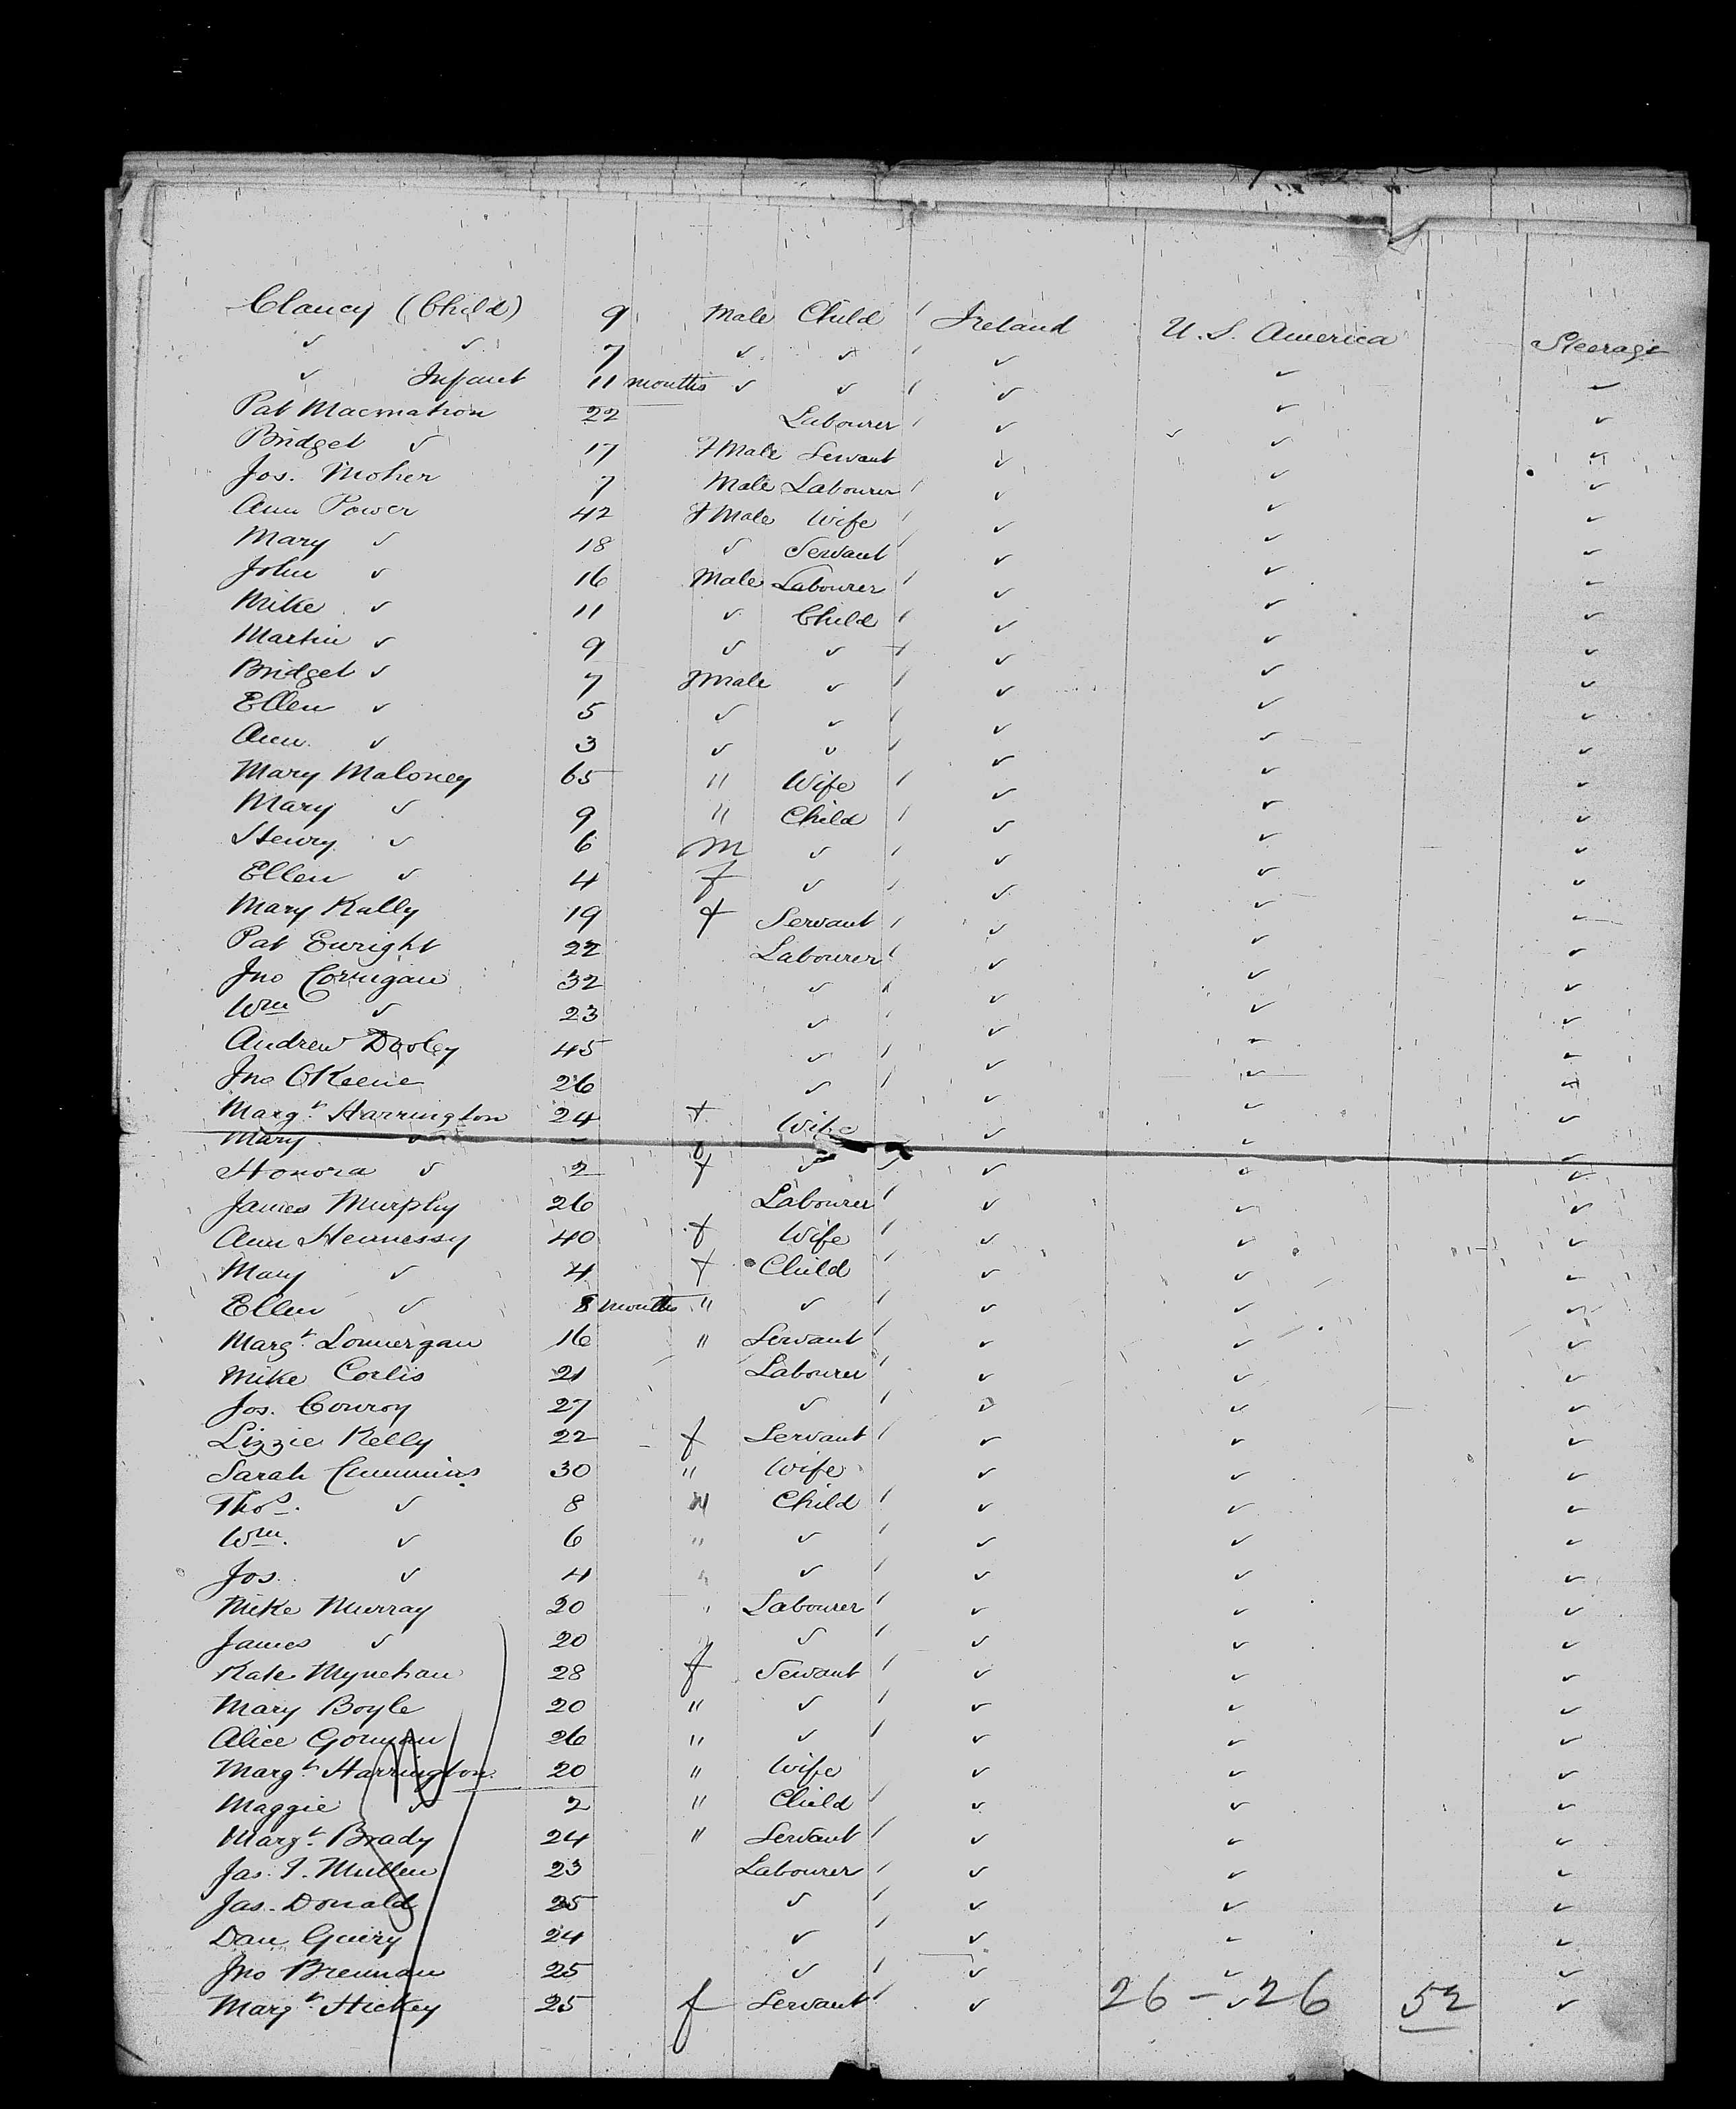 Clancy (Child) 9 Male Child Ireland U.S. America Steerage
✓ ✓ 7 ✓ ✓ ✓ ✓ ✓
✓ Infant 11 months ✓ ✓ ✓ ✓ ✓
Pat Macmahon 22 Labourer ✓ ✓ ✓
Bridget ✓ 17 fMale Servant ✓ ✓ ✓
Jos. Moher 7 Male Labourer ✓ ✓ ✓
Ann Power 42 fMale Wife ✓ ✓ ✓
Mary ✓ 18 ✓ Servant ✓ ✓ ✓
John ✓ 16 Male Labourer ✓ ✓ ✓
Mike ✓ 11 ✓ Child ✓ ✓ ✓
Martin ✓ 9 ✓ ✓ ✓ ✓ ✓
Bridget ✓ 7 fmale ✓ ✓ ✓ ✓
Ellen ✓ 5 ✓ ✓ ✓ ✓ ✓
Ann ✓ 3 ✓ ✓ ✓ ✓ ✓
Mary Maloney 65 " Wife ✓ ✓ ✓
Mary ✓ 9 " Child ✓ ✓ ✓
Henry ✓ 6 M ✓ ✓ ✓ ✓
Ellen ✓ 4 f ✓ ✓ ✓ ✓
Mary Kally 19 f Servant ✓ ✓ ✓
Pat Enright 22 Labourer ✓ ✓ ✓
Jno Corrigan 32 ✓ ✓ ✓ ✓
Wm ✓ 23 ✓ ✓ ✓ ✓
Andrew Dooley 45 ✓ ✓ ✓ ✓
Jno OKeene 26 ✓ ✓ ✓ ✓
Margt Harrington 24 f Wife ✓ ✓ ✓
Mary ✓
Honora ✓ 2 f ✓ ✓ ✓ ✓
James Murphy 26 Labourer ✓ ✓ ✓
Ann Hennessy 40 f Wife ✓ ✓ ✓
Mary ✓ 4 f Child ✓ ✓ ✓
Ellen ✓ 8 months " ✓ ✓ ✓ ✓
Margt. Lonnergan 16 " Servant ✓ ✓ ✓
Mike Corlis 21 Labourer ✓ ✓ ✓
Jos. Conroy 27 ✓ ✓ ✓ ✓
Lizzie Kelly 22 f Servant ✓ ✓ ✓
Sarah Cummins 30 " Wife ✓ ✓ ✓
Thos. ✓ 8 M Child ✓ ✓ ✓
Wm. ✓ 6 " ✓ ✓ ✓ ✓
Jos. ✓ 4 " ✓ ✓ ✓ ✓
Mike Murray 20 Labourer ✓ ✓ ✓
James ✓ 20 ✓ ✓ ✓ ✓
Kate Mynehan 28 f Servant ✓ ✓ ✓
Mary Boyle 20 " ✓ ✓ ✓ ✓
Alice Gorman 26 " ✓ ✓ ✓ ✓
Margt Harrington 20 " Wife ✓ ✓ ✓
Maggie ✓ 2 " Child ✓ ✓ ✓
Margt. Brady 24 " Servant ✓ ✓ ✓
Jas. I. Mullen 23 Labourer ✓ ✓ ✓
Jas. Donald 25 ✓ ✓ ✓ ✓
Dan Guiry 24 ✓ ✓ ✓ ✓
Jno Brennan 25 ✓ ✓ ✓ ✓
Margt. Hickey 25 f Servant ✓ 26 – ✓ 26 52 ✓